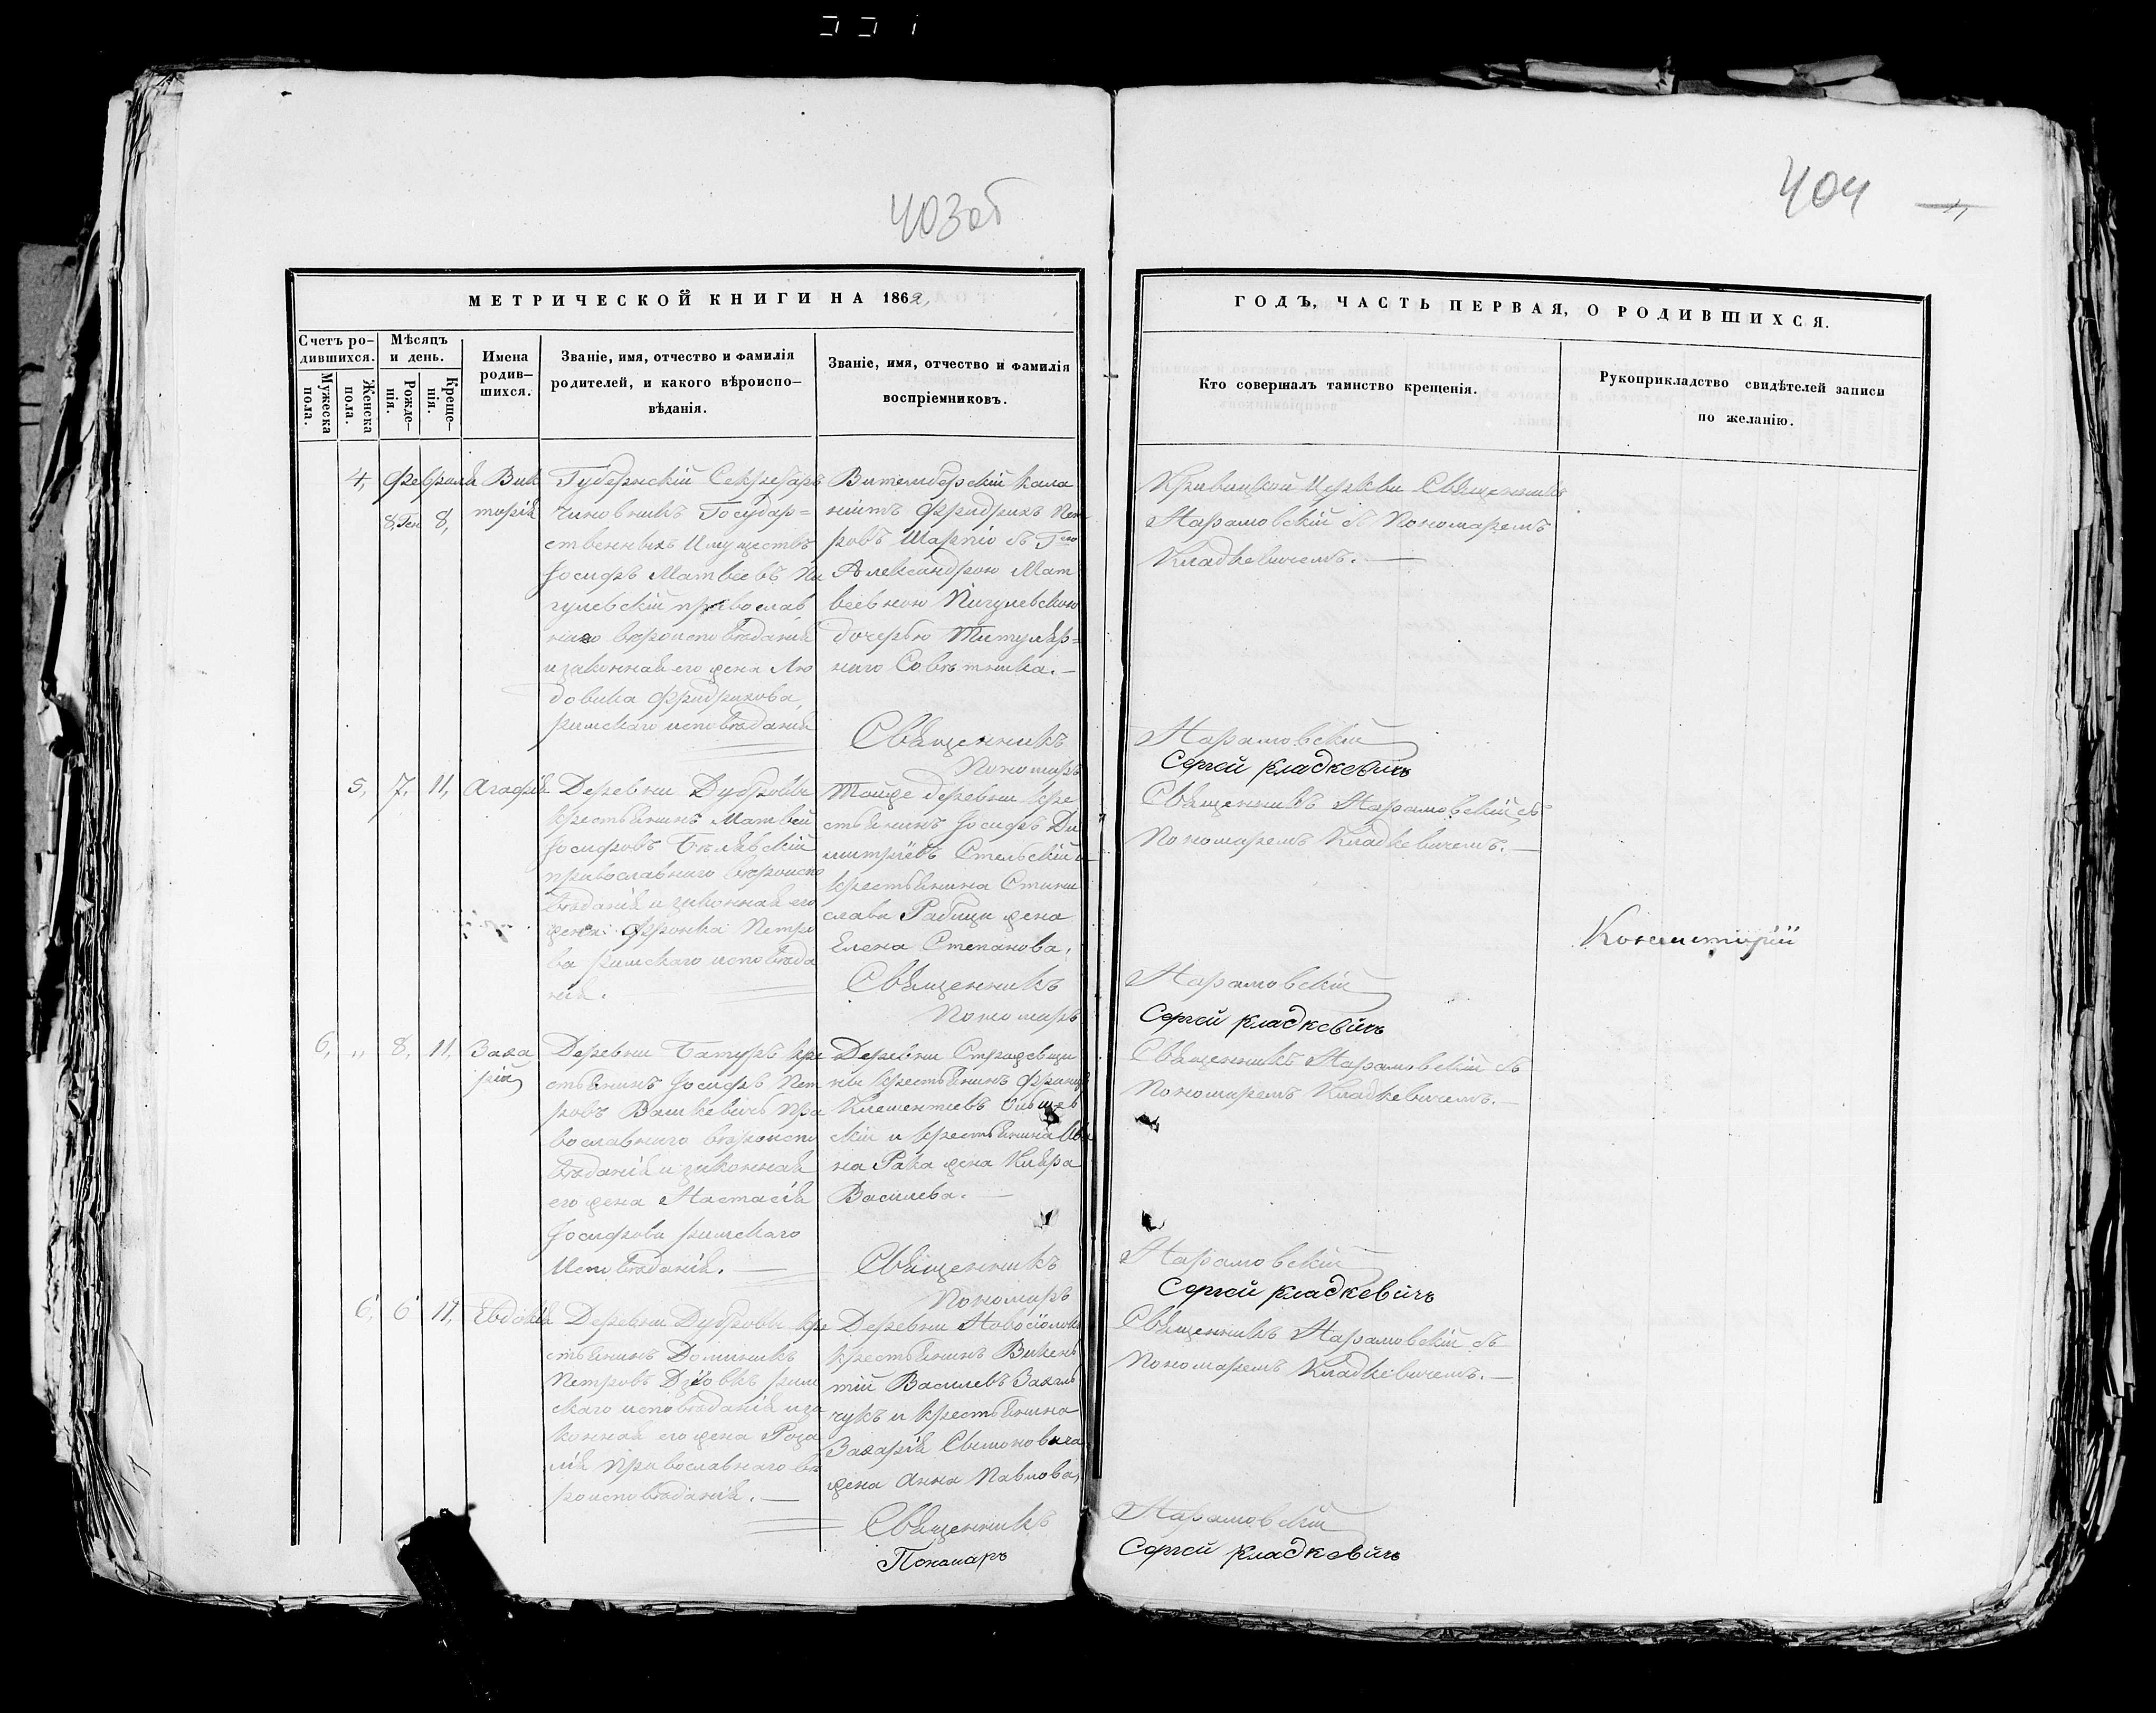 403об
404
МЕТРИЧЕСКОЙ КНИГИ НА 1862,
ГОДЪ, ЧАСТЬ ПЕРВАЯ, О РОДИВШИХСЯ.
Счетъ ро-
дившихся.
Мужеска
пола.
Женска
пола.
Мѣсяцъ
и день.
Рожде-
нія.
Креще-
нія.
Имена
родив-
шихся.
Званіе, имя, отчество и фамилія
родителей, и какого вѣроиспо-
вѣданія.
Званіе, имя, отчество и фамилія
воспріемниковъ.
Кто совершалъ таинство крещенія.
Рукоприкладство свидѣтелей записи
по желанію.
4, Февраля
8, Ген 8,
Вик
торія
Губернскій Секретарь
чиновникъ Государ=
ственныхъ Имуществъ
Іосифъ Матвѣевъ Пи
гулевскій православ
наго вѣроисповѣданія
и законная его жена Лю
довика Фридрихова,
римскаго исповѣданія
Витембергскій
Фридрихъ Пет
ровъ Шарпіо съ
Александрою Мат
вѣевною Пигулевскою
дочерью Титуляр=
наго Совѣтника.—
Священникъ
Пономарь
Кривицкой Церкви Священникъ
Нарамовскій съ Пономаремъ
Кладкевичемъ.—
Нарамовскій
Сергей Кладкевичъ
5, 7, 11, Агафія
Деревни Дубровы
крестьянинъ Матвей
Іосифовъ Бѣлявскій
православнаго вѣроиспо
вѣданія и законная его
жена Франка Петро
ва римскаго исповѣда
нія.
Тойже деревни кре
стьянинъ Іосифъ Ди
митріевъ Стельскій и
крестьянина Стани
слава Рабици жена
Елена Степанова,
Священникъ
Пономарь
Священникъ Нарамовскій съ
Пономаремъ Кладкевичемъ.—
Консисторіи
Нарамовскій
Сергей Кладкевичъ
6, „ 8, 11, Заха
рій
Деревни Батуръ кре
стьянинъ Іосифъ Пет
ровъ Вашкевичъ пра
вославнаго вѣроиспо
вѣданія и законная
его жена Настасія
Іосифова римскаго
исповѣданія.—
Деревни
крестьянинъ Франц
Клементіевъ
скій и крестьянина Ива
на Рака жена Клара
Василева.—
Священникъ
Пономарь
Священникъ Нарамовскій съ
Пономаремъ Кладкевичемъ.—
Нарамовскій
Сергей Кладкевичъ
6, 6 11, Евдокія
Деревни Дубровы кре
стьянинъ Доминикъ
Петровъ рим
скаго исповѣданія и за
конная его жена Роза
лія православнаго вѣ
роисповѣданія.—
Деревни Новосіолокъ
крестьянинъ Викен
тій Василевъ Захаль
чукъ и крестьянина
Захарія Сымоновича
жена Анна Павлова,
Священникъ
Пономаръ
Священникъ Нарамовскій съ
Пономаремъ Кладкевичемъ.—
Нарамовскій
Сергей Кладкевичъ